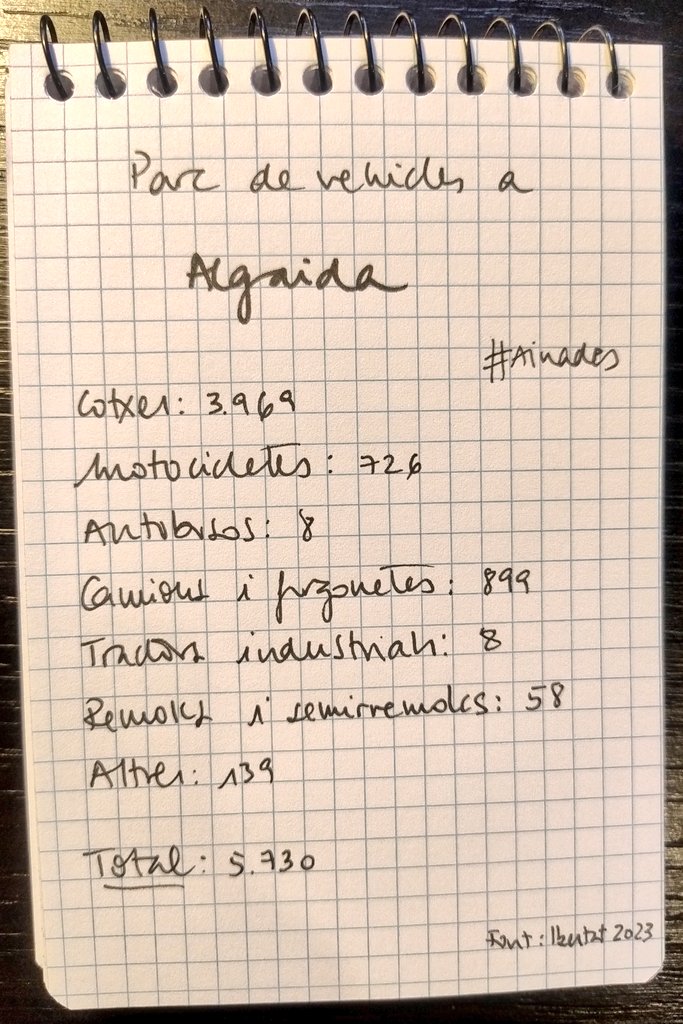 Parc de vehicles a
Algaida
#Ainades
Cotxes: 3.969
Motocicletes: 726
Autobusos: 8
Camions i furgonetes: 899
Tractors industrials: 8
Remolcs i semirremolcs: 58
Altres: 139
Total: 5.730
Font: Ibestat 2023